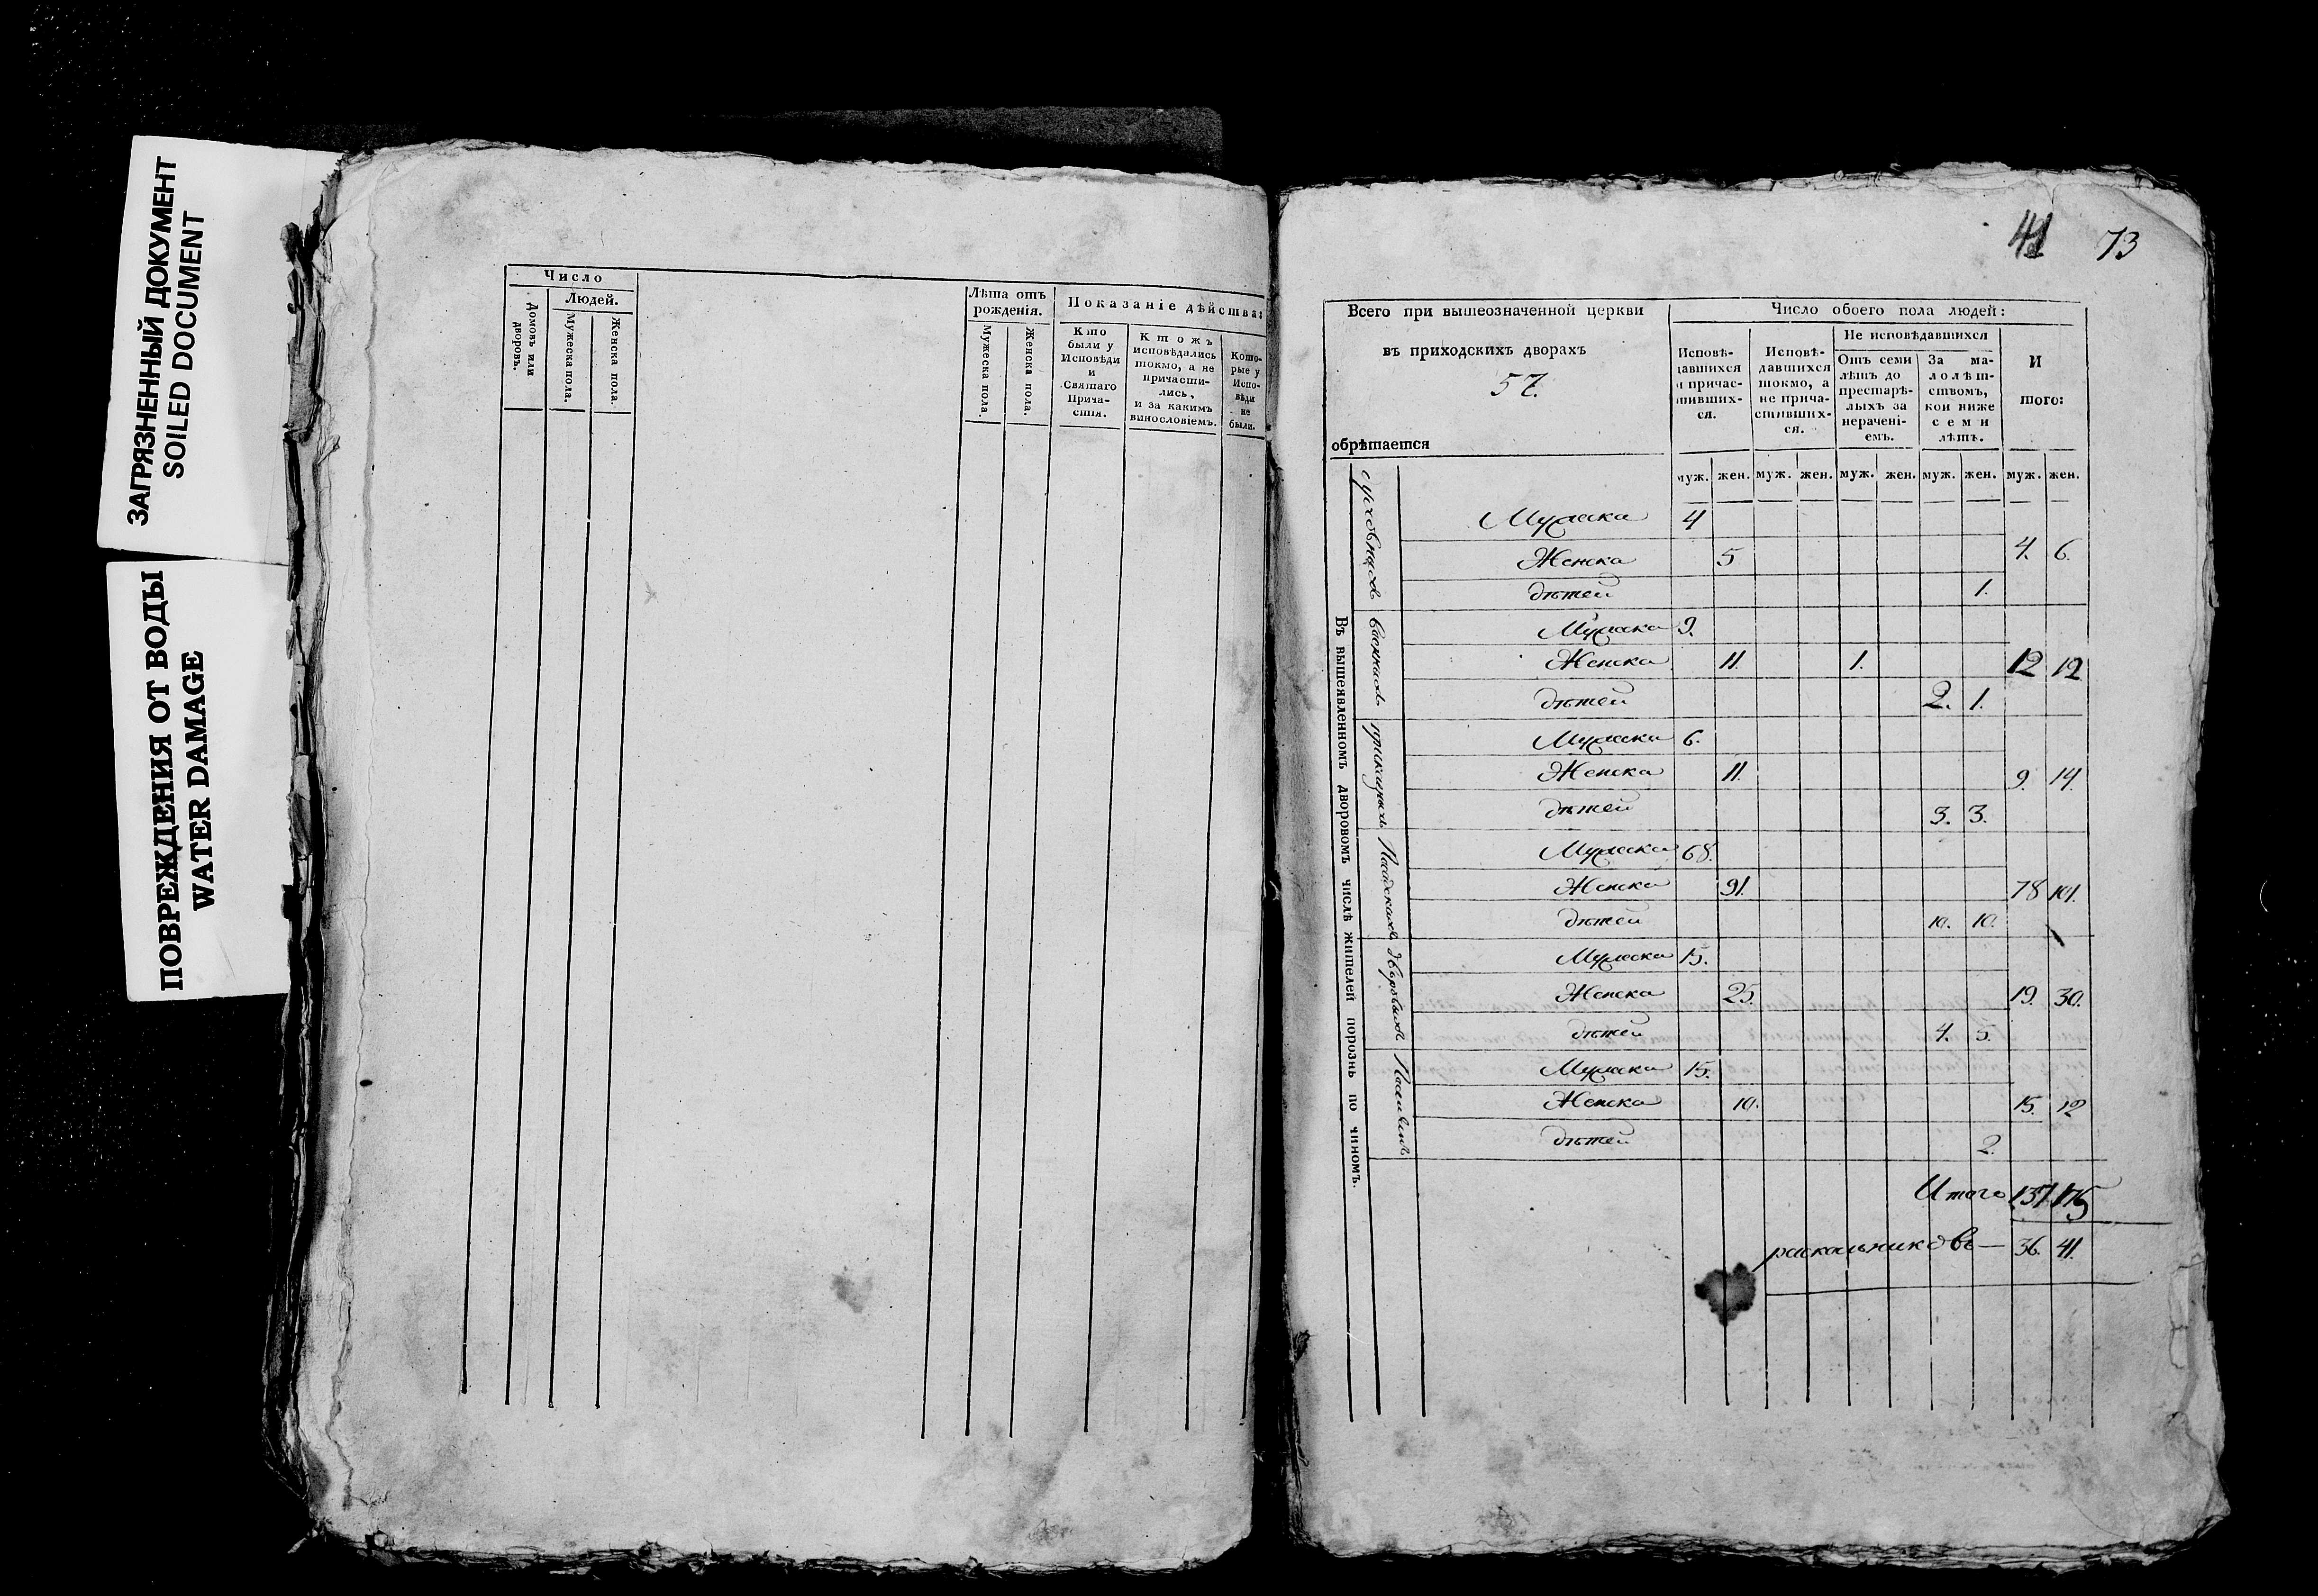 ЗАГРЯЗНЕННЫЙ ДОКУМЕНТ
SOILED DOCUMENT
ПОВРЕЖДЕНИЯ ОТ ВОДЫ
WATER DAMAGE
Число
Домовъ или дворовъ.
Людей.
Мужеска пола.
Женска пола.
Лѣта отъ
рожденія.
Мужеска пола.
Женска пола.
Показаніе дѣйства:
Кто
были у
Исповѣди
и
Святаго
Прича-
стія.
Ктожъ
исповѣдались
токмо, а не
причасти-
лись,
и за какимъ
винословіемъ.
Кото-
рые у
Испо-
вѣди
не
были.
41 73
Всего при вышеозначенной церкви
въ приходскихъ дворахъ
57.
обрѣтается
Число обоего пола людей:
Исповѣ-
давшихся
и причас-
тивших-
ся.
Исповѣ-
давшихся
токмо, а
не прича-
стивших-
ся.
Не исповѣдавшихся
Отъ семи
лѣтъ до
престарѣ-
лыхъ за
нерачені-
емъ.
За ма-
лолѣт-
ствомъ,
кои ниже
семи
лѣтъ.
И
того:
муж. жен. муж. жен. муж. жен. муж. жен. муж. жен.
Въ вышеявленномъ дворовомъ числѣ жителей порознь по чиномъ.
Мужеска 4
Женска 5 4. 6.
дѣтей 1.
военныхъ
Мужеска 9.
Женска 11. 1. 12 12
дѣтей 2. 1.
приказныхъ
Мужеска 6.
Женска 11. 9. 14.
дѣтей 3. 3.
Посадскихъ
Мужеска 68.
Женска 91. 78 101.
дѣтей 10. 10.
дворовыхъ
Мужеска 15.
Женска 25. 19. 30.
дѣтей 4. 5.
Поселянъ
Мужеска 15.
Женска 10. 15. 12
дѣтей 2.
Итого 137. 175
раскольниковъ — 36. 41.